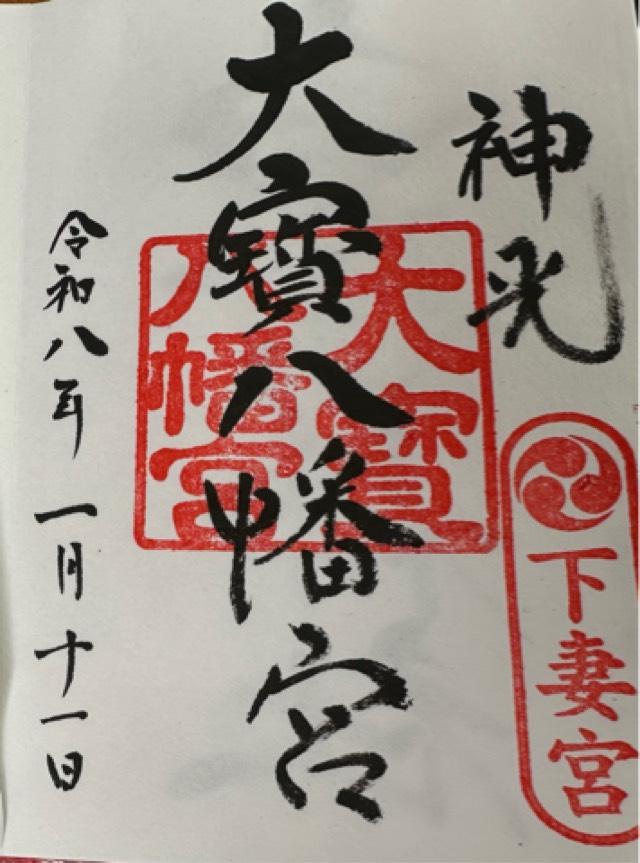 神光
下妻宮
大寶八幡宮
大寶
八幡宮
令和八年 一月十一日